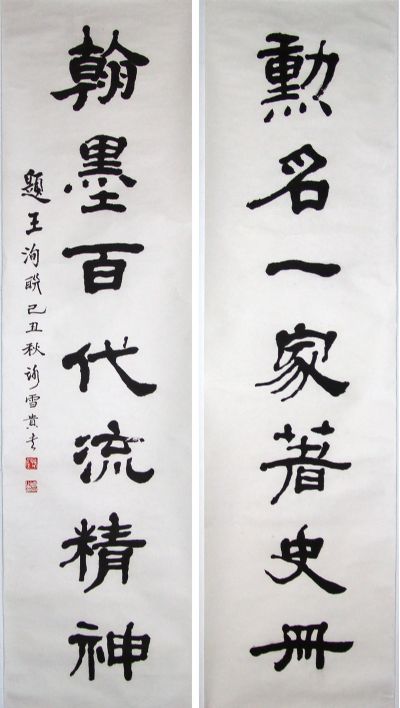 勳名一家著史冊
翰墨百代流精神
題王洵聯己丑秋謝雪貴書